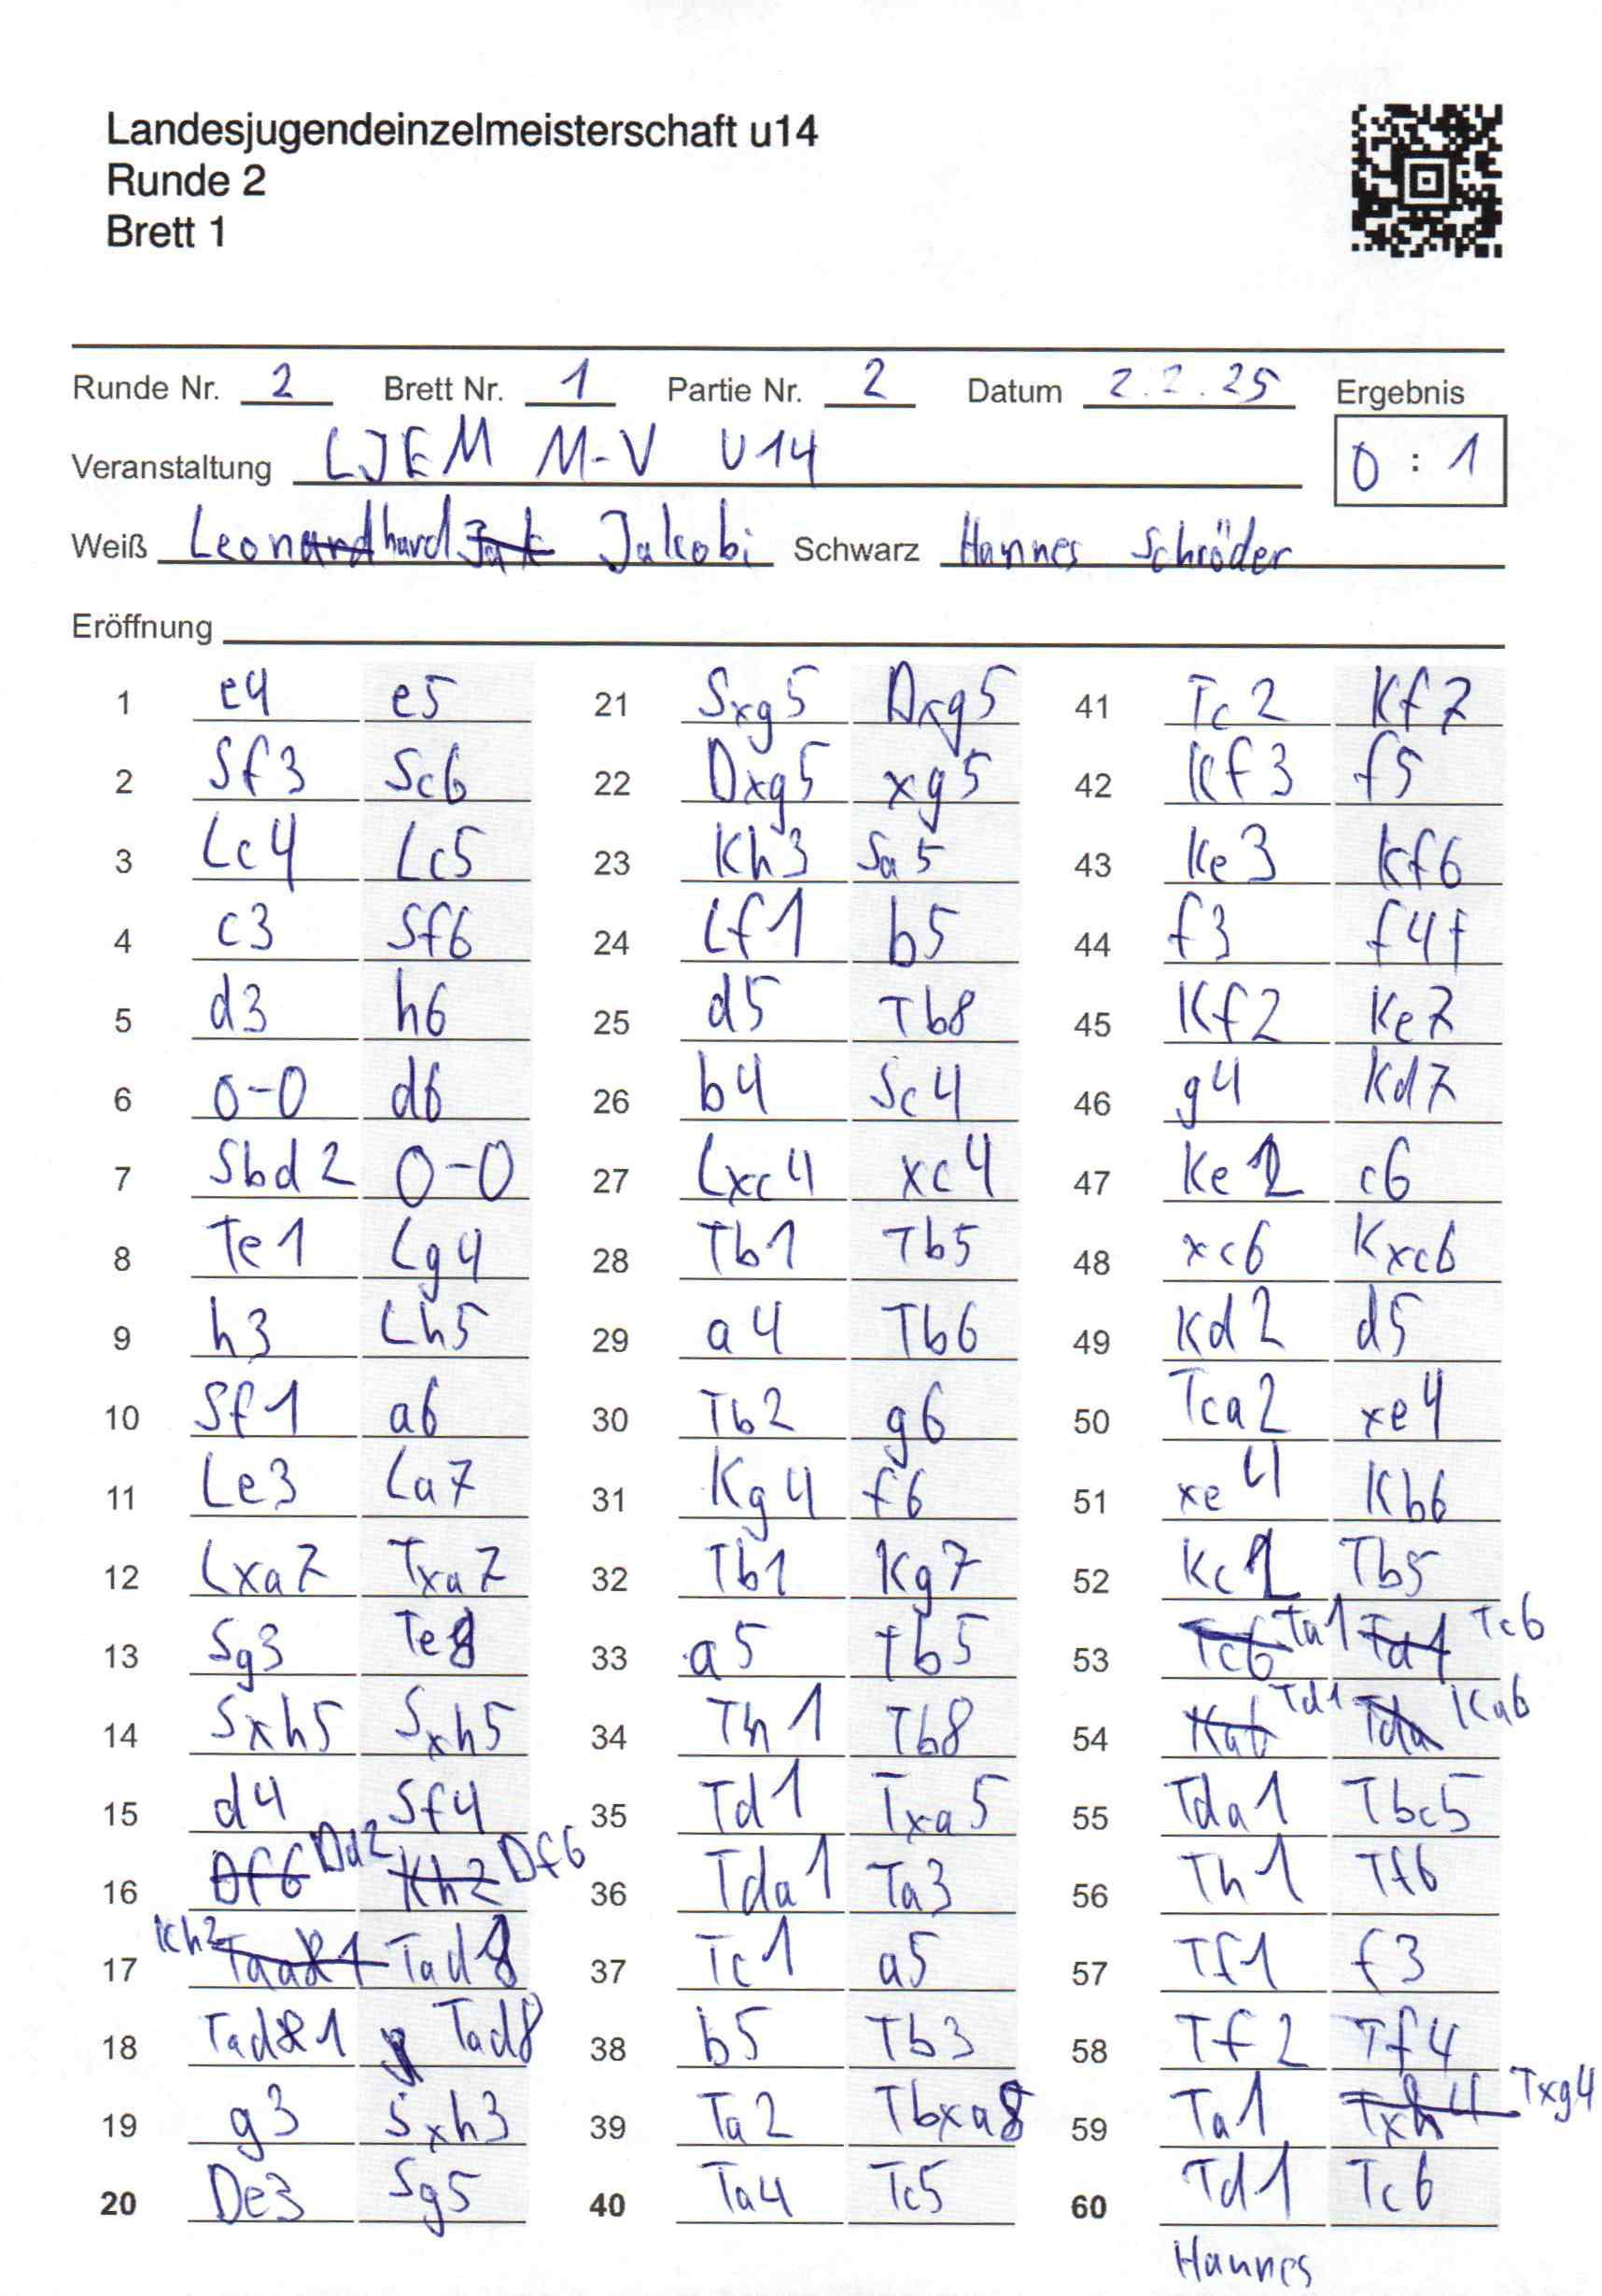 Landesjugendeinzelmeisterschaft u14
Runde 2
Brett 1
Runde Nr. 2 Brett Nr. 1 Partie Nr. 2 Datum 2.2.25 Ergebnis
Veranstaltung LJEM M-V U14 0 : 1
Weiß Leonhard Jakobi Schwarz Hannes Schröder
Eröffnung
1 e4 e5 21 Sxg5 Dxg5 41 Tc2 Kf7
2 Sf3 Sc6 22 Dxg5 xg5 42 Kf3 f5
3 Lc4 Lc5 23 Kh3 Sa5 43 Ke3 Kf6
4 c3 Sf6 24 Lf1 b5 44 f3 f4+
5 d3 h6 25 d5 Tb8 45 Kf2 Ke7
6 0-0 d6 26 b4 Sc4 46 g4 Kd7
7 Sbd2 0-0 27 Lxc4 xc4 47 Ke2 c6
8 Te1 Lg4 28 Tb1 Tb5 48 xc6 Kxc6
9 h3 Lh5 29 a4 Tb6 49 Kd2 d5
10 Sf1 a6 30 Tb2 g6 50 Tca2 xe4
11 Le3 La7 31 Kg4 f6 51 xe4 Kb6
12 Lxa7 Txa7 32 Tb1 Kg7 52 Kc2 Tb5
13 Sg3 Te8 33 a5 Tb5 53 Tc6 Ta1 Ta1 Tc6
14 Sxh5 Sxh5 34 Th1 Tb8 54 Ka6 Td1 Tda Ka6
15 d4 Sf4 35 Td1 Txa5 55 Tda1 Tbc5
16 Df6 Dd2 Kh2 Df6 36 Tda1 Ta3 56 Th1 Tf6
17 Kh2 Tad8 37 Tc1 a5 57 Tf1 f3
18 Tad1 Tad8 38 b5 Tb3 58 Tf2 Tf4
19 g3 Sxh3 39 Ta2 Tbxa8 59 Ta1 Txh4 Txg4
20 De3 Sg5 40 Ta4 Tc5 60 Td1 Tc6
Hannes